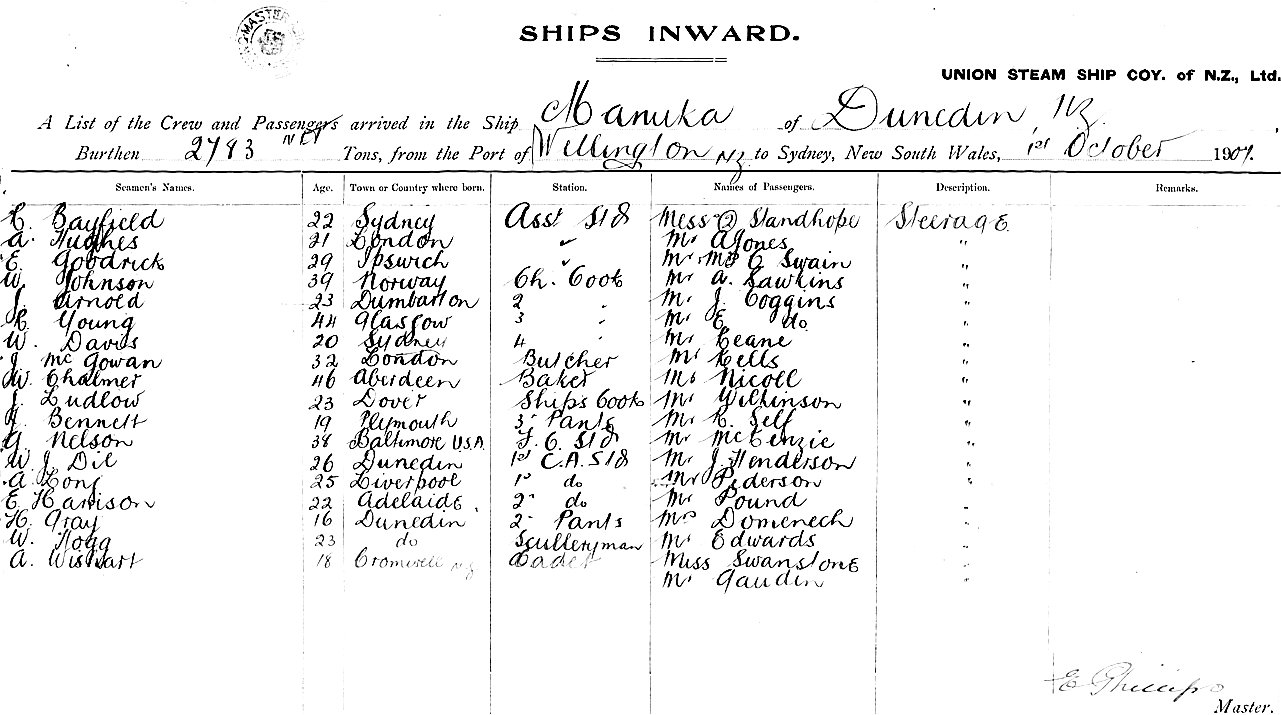 SHIPS INWARD.
UNION STEAM SHIP COY. of N.Z., Ltd.
A List of the Crew and Passengers arrived in the Ship Manuka of Dunedin, NZ
Burthen 2783 NET Tons, from the Port of Wellington NZ to Sydney, New South Wales, 1st October 1907.
Seamen's Names. Age. Town or Country where born. Station. Names of Passengers. Description. Remarks.
Bayfield 22 Sydney Asst Std Mess Standhope Steerage
A. Hughes 21 London " Mr A Jones "
E. Goodrick 29 Ipswich " Mr Mrs C Swain "
W. Johnson 39 Norway Ch. Cook Mr A. Sawkins "
J. Arnold 23 Dumbarton 2 " Mr J. Coggins "
Young 44 Glasgow 3 " Mr E do "
W. Davis 20 Sydney 4 " Mr Keane "
J. McGowan 32 London Butcher Mr Kells "
W. Chalmer 46 Aberdeen Baker Mr Nicoll "
J. Ludlow 23 Dover Ships Cook Mr Wilkinson "
Bennett 19 Plymouth 3rd Pants Mr R. Self "
Nelson 38 Baltimore U.S.A. F. C. Std Mr McKenzie "
W J. Die 26 Dunedin 1st C.A. Std Mr J Henderson "
A Long 25 Liverpool 1st do Mr Pederson "
E Harrison 22 Adelaide 2nd do Mr Pound "
H. Gray 16 Dunedin 2nd Pants Mrs Domenech "
W. Hogg 23 do Sculleryman Mr Edwards "
A. Wishart 18 Cromwell NZ Cadet Miss Swanstone "
Mr Gaudin "
E Phillips
Master.